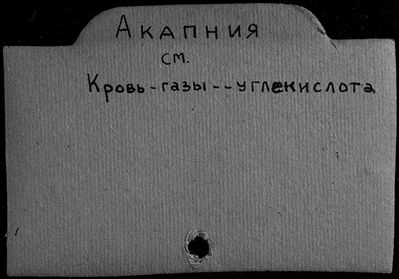 Акапния
см.
Кровь-газы--углекислота